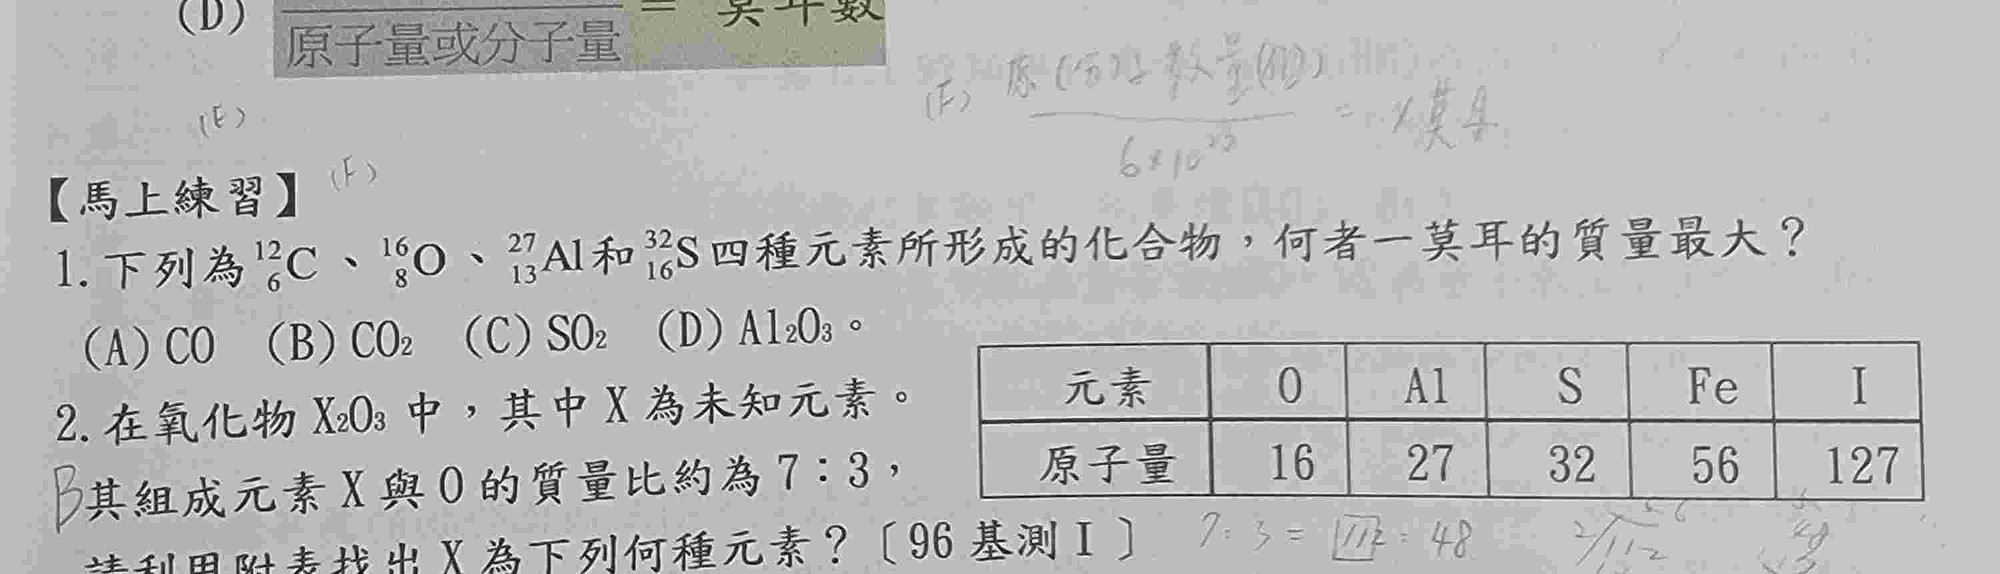 (D) 原子量或分子量 = 莫耳數
(F) 原(分)子數量(個) / 6×10²³ = 莫耳
(E)
【馬上練習】 (F)
1. 下列為 ¹²₆C、¹⁶₈O、²⁷₁₃Al和³²₁₆S四種元素所形成的化合物，何者一莫耳的質量最大？
(A) CO (B) CO₂ (C) SO₂ (D) Al₂O₃。
2. 在氧化物 X₂O₃ 中，其中 X 為未知元素。
B 其組成元素 X 與 O 的質量比約為 7：3，
請利用附表找出 X 為下列何種元素？〔96 基測 I〕
元素 O Al S Fe I
原子量 16 27 32 56 127
7:3 = 112:48